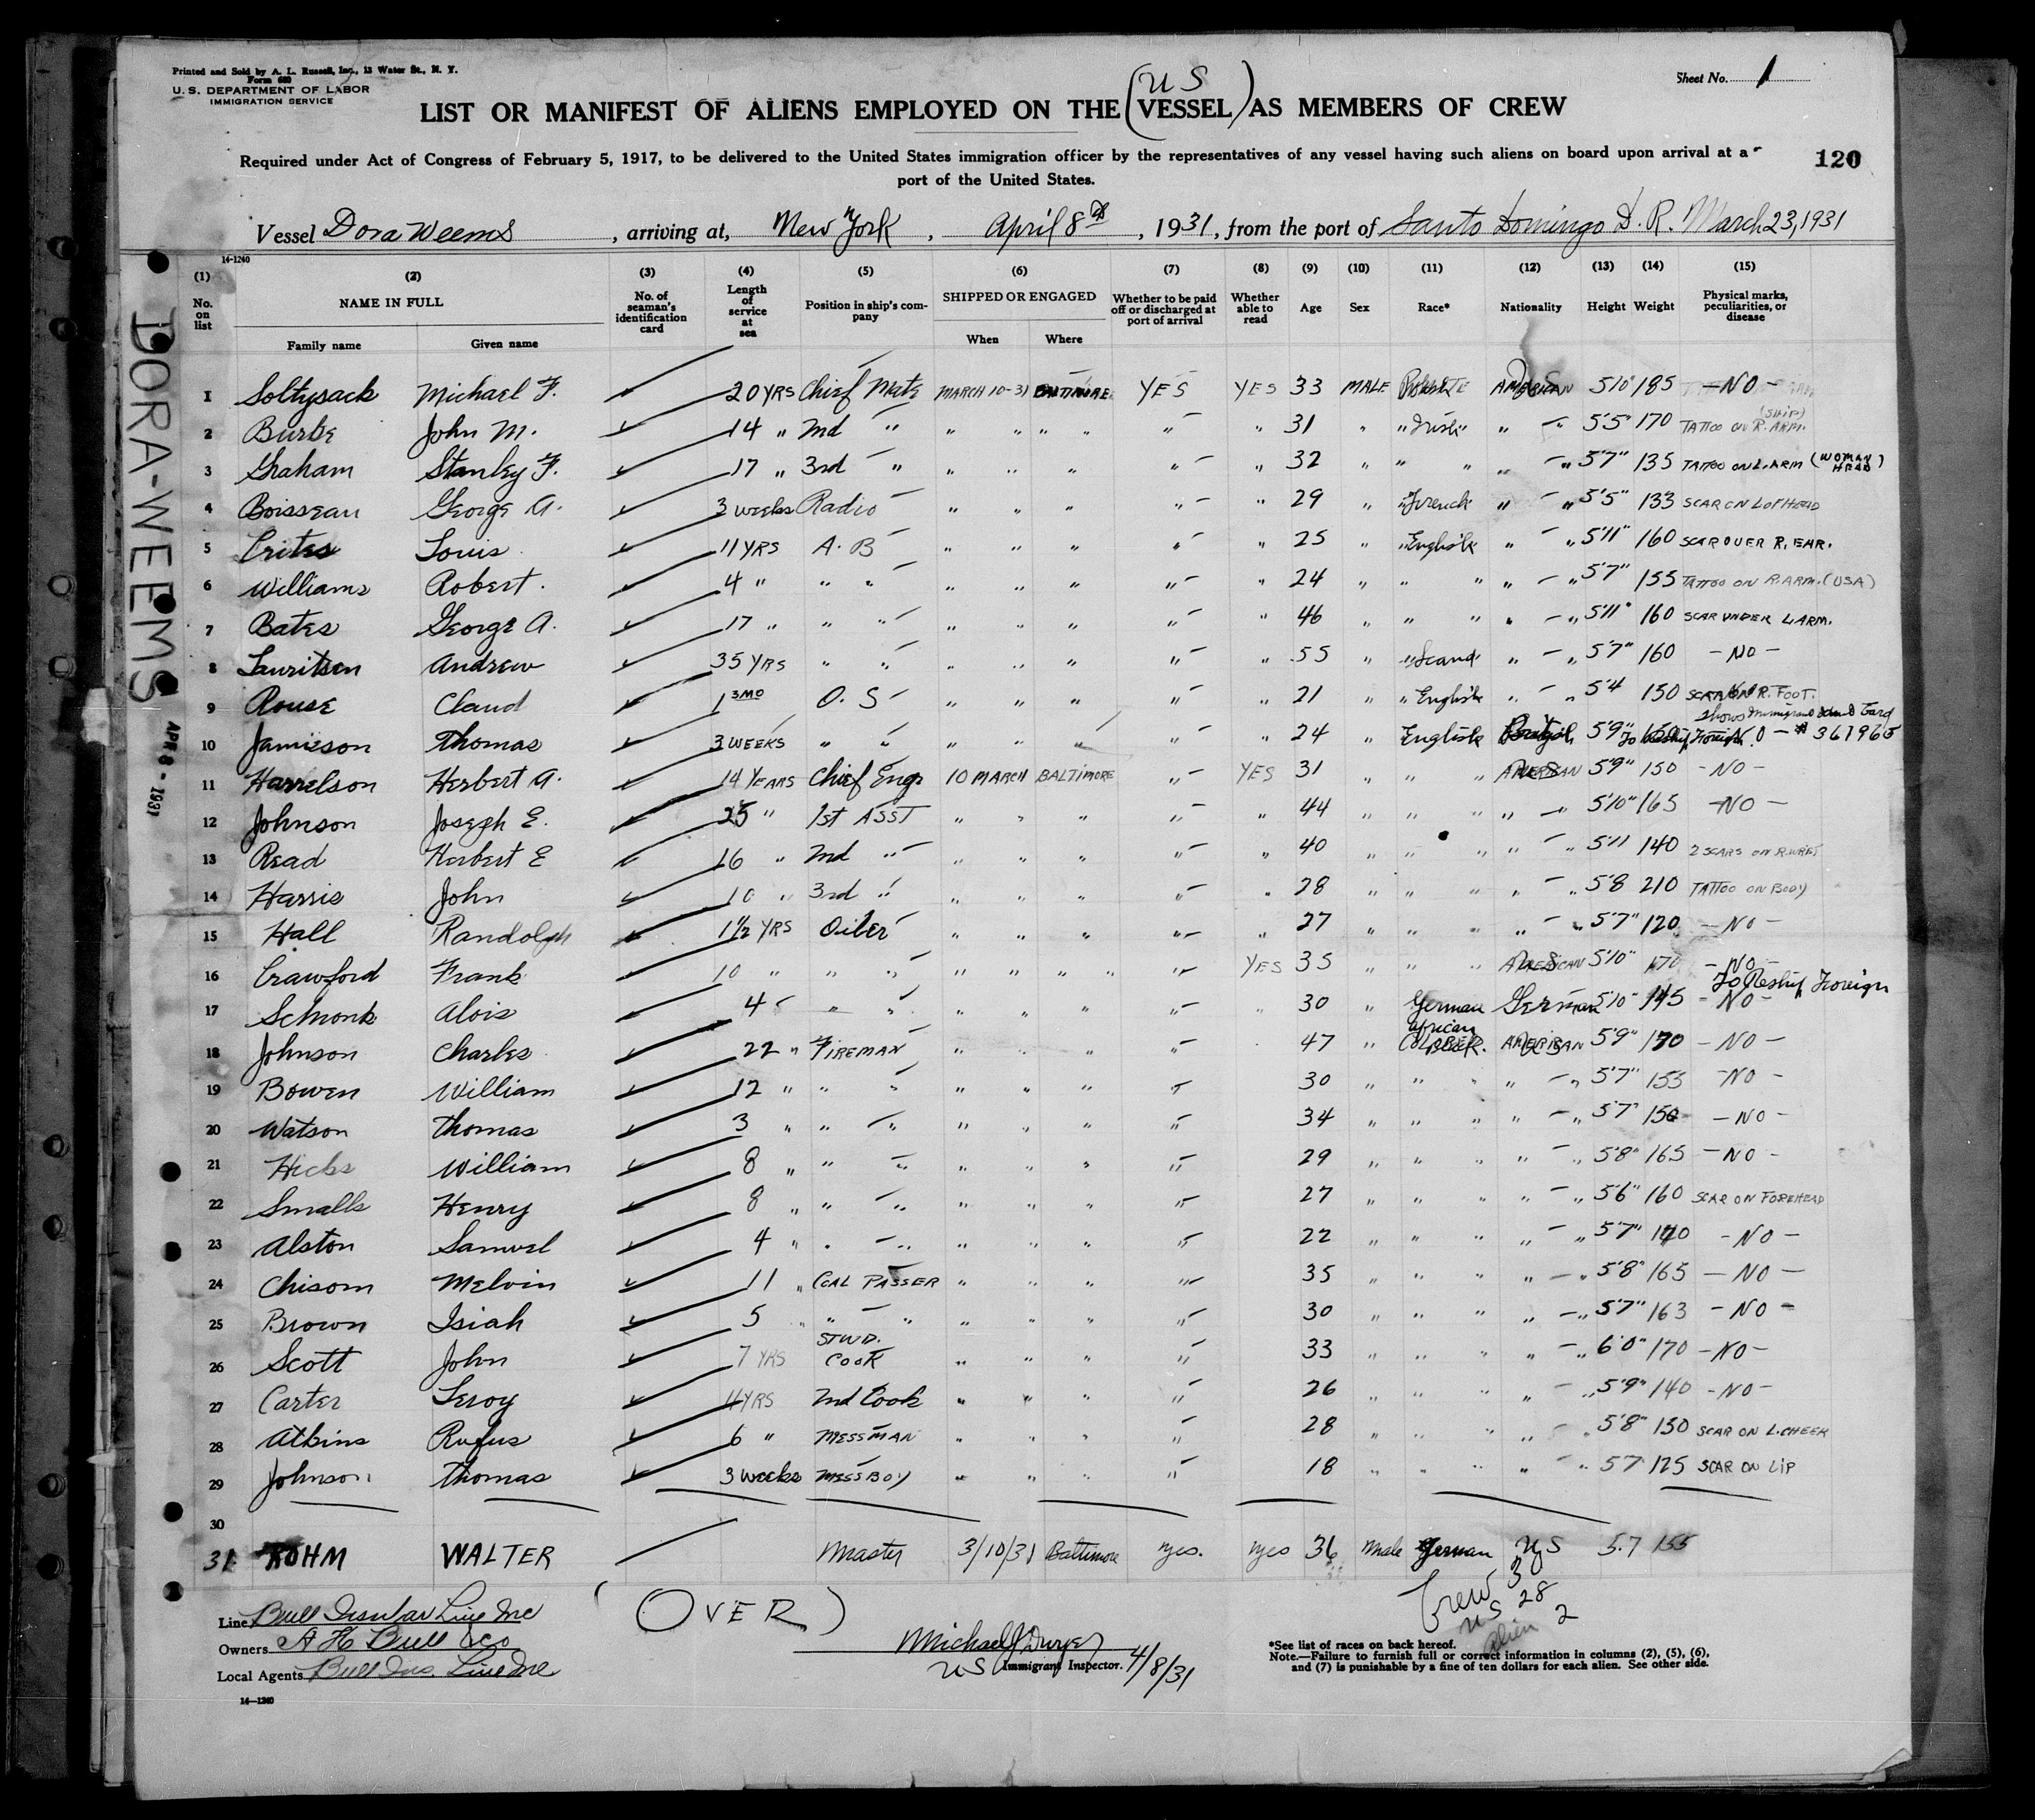 Printed and Sold by A. L. Russell, Inc., 13 Water St., N. Y.
Form 680
U. S. DEPARTMENT OF LABOR
IMMIGRATION SERVICE
Sheet No. 1
US
LIST OR MANIFEST OF ALIENS EMPLOYED ON THE (VESSEL) AS MEMBERS OF CREW
Required under Act of Congress of February 5, 1917, to be delivered to the United States immigration officer by the representatives of any vessel having such aliens on board upon arrival at a
port of the United States.
120
Vessel Dora Weems, arriving at, New York, April 8th, 1931, from the port of Santo Domingo D. R. March 23, 1931
14-1240
(1) (2) (3) (4) (5) (6) (7) (8) (9) (10) (11) (12) (13) (14) (15)
No. on list NAME IN FULL Family name Given name No. of seaman's identification card Length of service at sea Position in ship's company SHIPPED OR ENGAGED When Where Whether to be paid off or discharged at port of arrival Whether able to read Age Sex Race* Nationality Height Weight Physical marks, peculiarities, or disease
1 Soltysack Michael F. 20 YRS Chief Mate MARCH 10-31 BALTIMORE YES YES 33 MALE AMERICAN 5'10" 185 - NO -
2 Burke John M. 14 " 2nd " " " " " " " 31 " " Irish " " " 5'5" 170 TATTOO ON R. ARM. (SHIP)
3 Graham Stanley F. 17 " 3rd " " " " " " 32 " " " " " 5'7" 135 TATTOO ON L. ARM (WOMAN HEAD)
4 Boisseau George A. 3 weeks Radio " " " " " 29 " " French " " 5'5" 133 SCAR ON L OF HEAD
5 Crites Louis 11 YRS A. B " " " " " 25 " " English " " 5'11" 160 SCAR OVER R. EAR.
6 Williams Robert. 4 " " " " " " " " 24 " " " " " 5'7" 155 TATTOO ON R. ARM. (USA)
7 Bates George A. 17 " " " " " " " " 46 " " " " " 5'11" 160 SCAR UNDER L ARM.
8 Lauritsen Andrew 35 YRS " " " " " " " 55 " " Scand " " 5'7" 160 - NO -
9 Rouse Claud 1 3MO O. S " " " " " 21 " " English " " 5'4 150 SCAR ON R. FOOT.
10 Jamieson Thomas 3 WEEKS " " " " " " 24 " English British 5'9" 150 To Reship Foreign - NO - # 361965
shows Immigrant Card
11 Harrelson Herbert A. 14 YEARS Chief Engr 10 MARCH BALTIMORE " YES 31 " " " AMERICAN 5'9" 150 - NO -
12 Johnson Joseph E. 25 " 1st ASST " " " " " 44 " " " " " 5'10" 165 - NO -
13 Read Herbert E 16 " 2nd " " " " " " 40 " " " " " 5'11 140 2 SCARS ON R. WRIST
14 Harris John 10 " 3rd " " " " " " 28 " " " " " 5'8 210 TATTOO ON BODY
15 Hall Randolph 1 1/2 YRS Oiler " " " " " 27 " " " " " 5'7" 120 - NO -
16 Crawford Frank 10 " " " " " " " " YES 35 " " " AMERICAN 5'10" 170 - NO -
To Reship Foreign
17 Schonk Alois 4 " " " " " " " 30 " German German 5'10" 145 - NO -
African
18 Johnson Charles 22 " FIREMAN " " " " 47 " COLORED AMERICAN 5'9" 170 - NO -
19 Bowen William 12 " " " " " " " 30 " " " " " 5'7" 155 - NO -
20 Watson Thomas 3 " " " " " " " 34 " " " " " 5'7" 150 - NO -
21 Hicks William 8 " " " " " " " 29 " " " " " 5'8" 165 - NO -
22 Smalls Henry 8 " " " " " " " 27 " " " " " 5'6" 160 SCAR ON FOREHEAD
23 Alston Samuel 4 " " " " " " " 22 " " " " " 5'7" 140 - NO -
24 Chisom Melvin 11 " COAL PASSER " " " " 35 " " " " " 5'8" 165 - NO -
25 Brown Isiah 5 " " " " " " " 30 " " " " " 5'7" 163 - NO -
26 Scott John 7 YRS STWD. COOK " " " " 33 " " " " " 6'0" 170 - NO -
27 Carter Leroy 4 YRS 2nd Cook " " " " 26 " " " " " 5'9" 140 - NO -
28 Atkins Rufus 6 " MESSMAN " " " " 28 " " " " " 5'8" 130 SCAR ON L. CHEEK
29 Johnson Thomas 3 weeks MESSBOY " " " " 18 " " " " " 5'7 125 SCAR ON LIP
30
31 ROHM WALTER Master 3/10/31 Baltimore yes. yes 36 Male German US 5.7 155
Crew 30
US 28
Alien 2
(OVER)
Line Bull Insular Line Inc
Owners A H Bull & Co
Local Agents Bull Ins. Line Inc
Michael J Dwyer
US Immigrant Inspector. 4/8/31
*See list of races on back hereof.
Note.—Failure to furnish full or correct information in columns (2), (5), (6),
and (7) is punishable by a fine of ten dollars for each alien. See other side.
14—1240
DORA-WEEMS
APR 8 - 1931